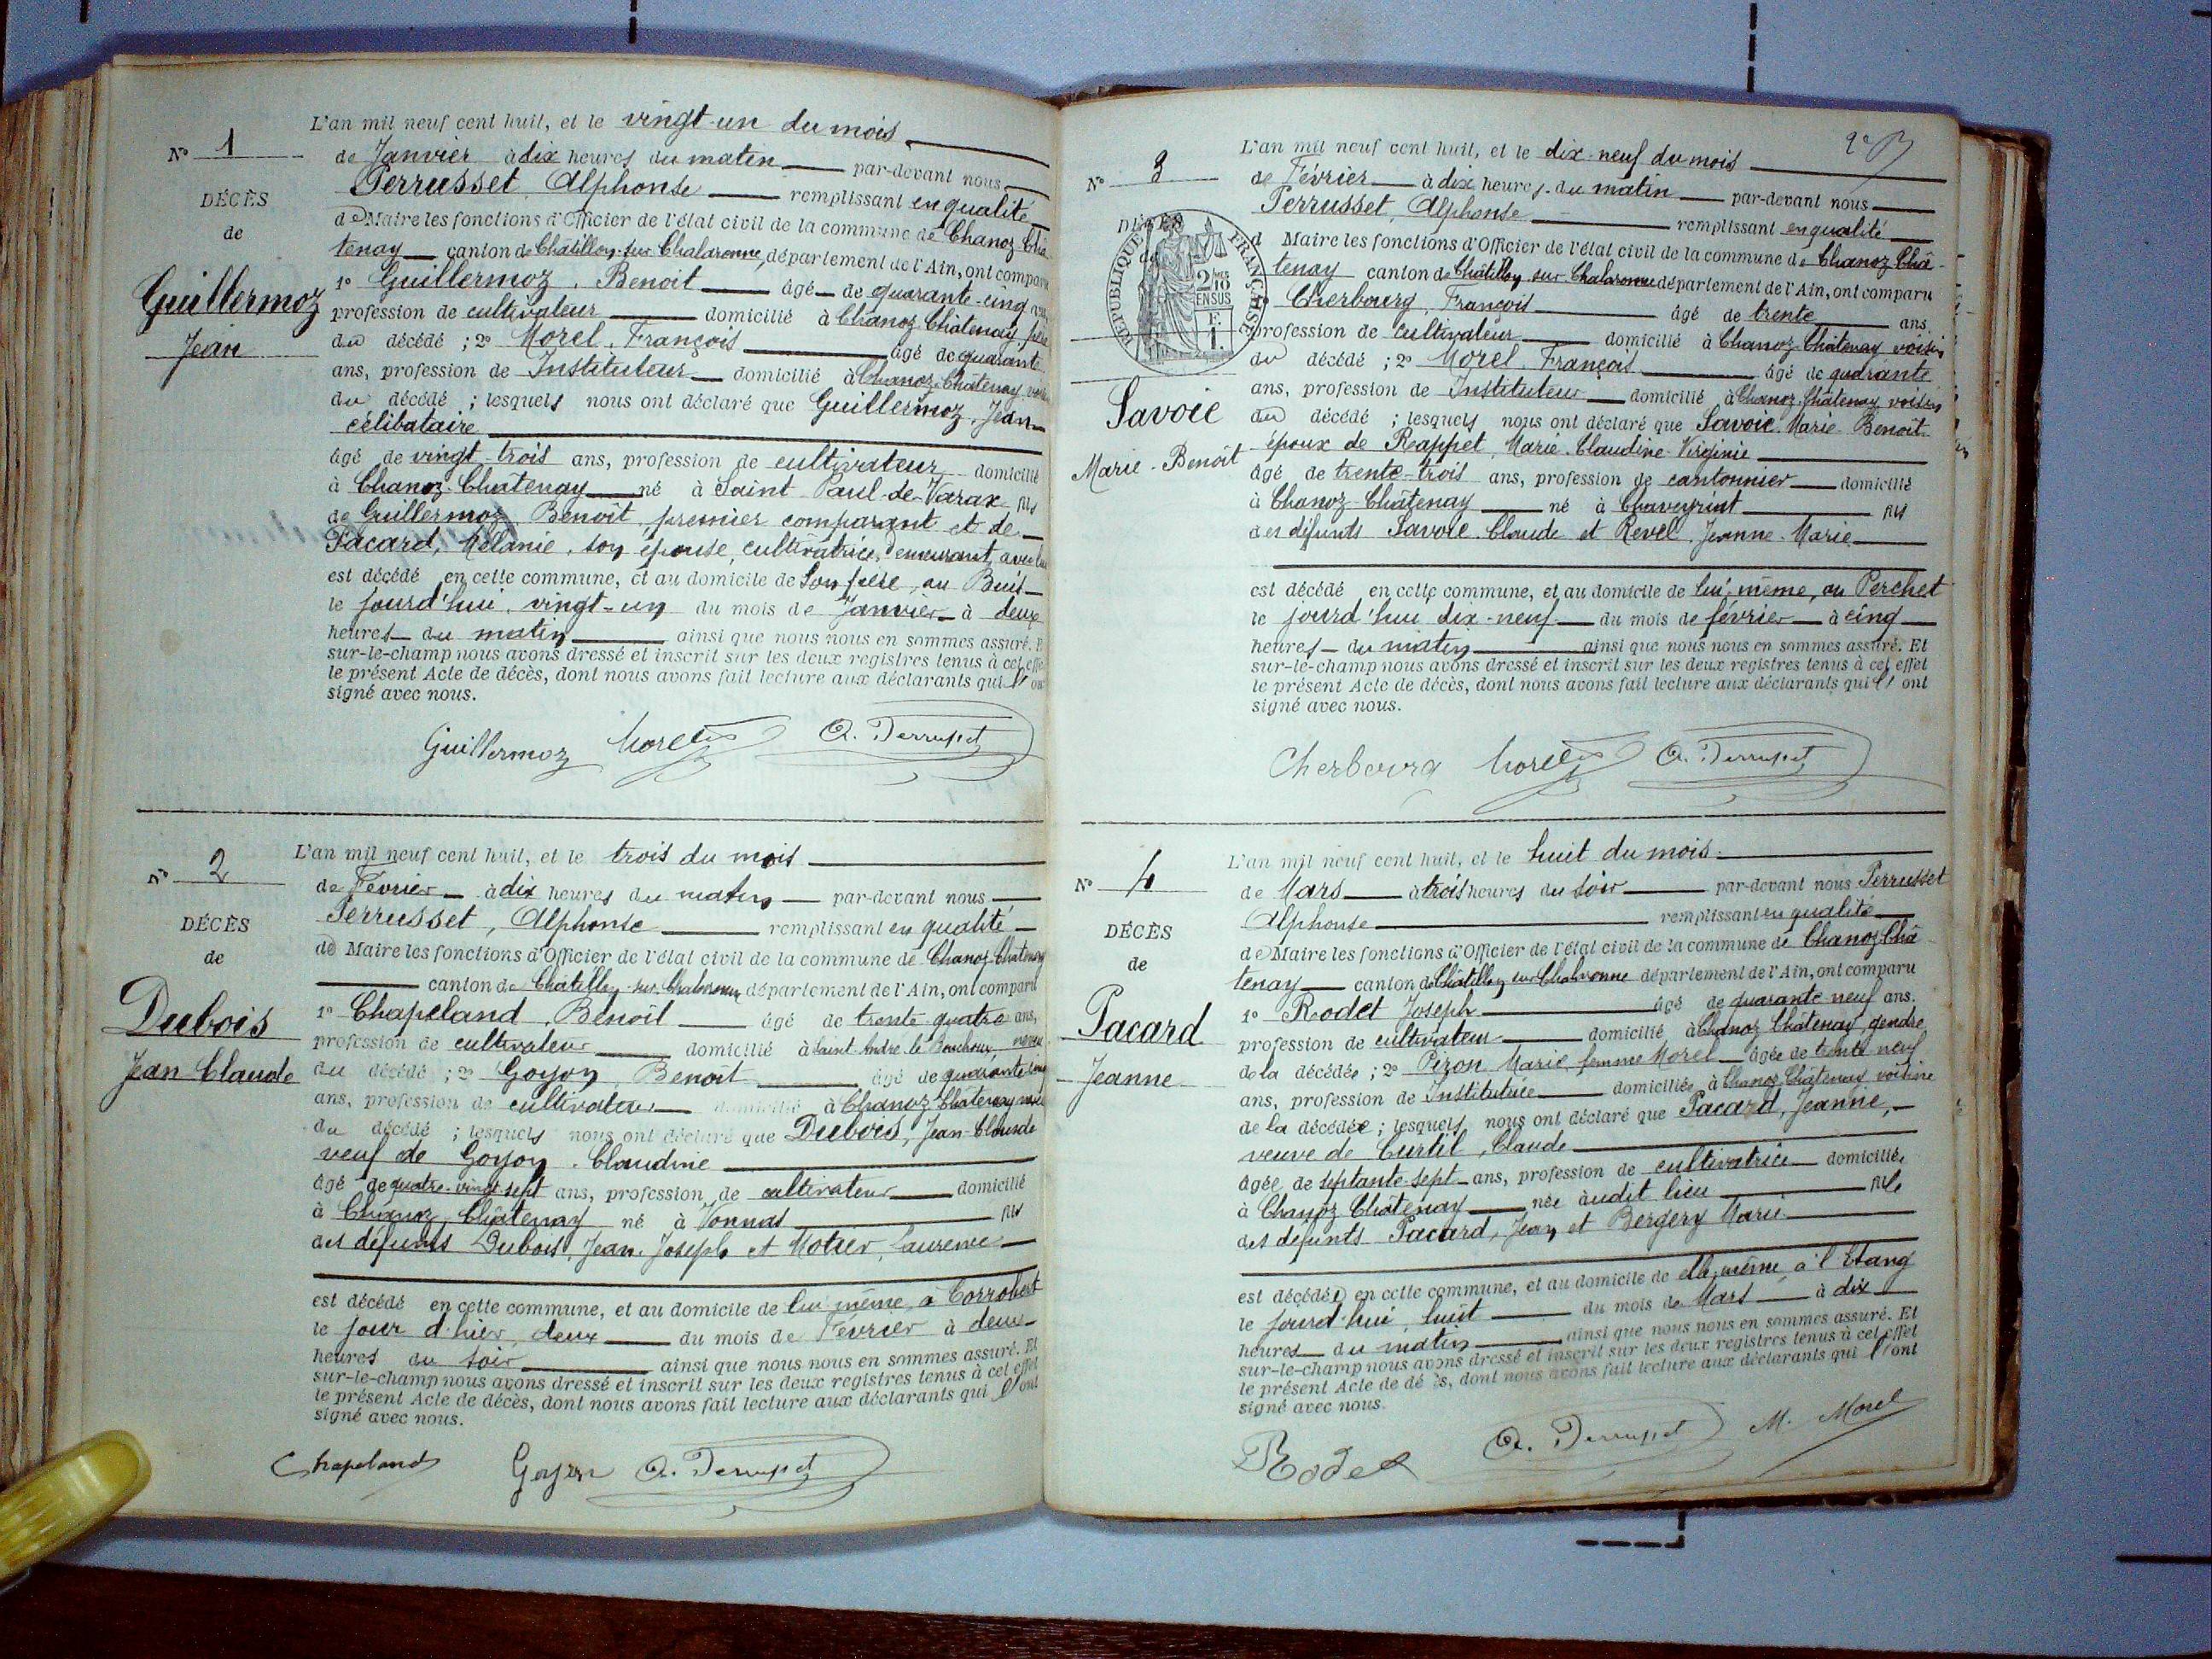 N° 1
DÉCÈS
de
Guillermoz
Jean
L'an mil neuf cent huit, et le vingt-un du mois
de Janvier à dix heures du matin par-devant nous
Perrusset Alphonse remplissant en qualité
de Maire les fonctions d'Officier de l'état civil de la commune de Chanoz-Châ-
tenay canton de Châtillon-sur-Chalaronne, département de l'Ain, ont comparu
1° Guillermoz, Benoit âgé de quarante-cinq ans,
profession de cultivateur domicilié à Chanoz-Châtenay, père
du décédé ; 2° Morel, François âgé de quarante
ans, profession de Instituteur domicilié à Chanoz-Châtenay voisin
du décédé ; lesquels nous ont déclaré que Guillermoz, Jean
célibataire
âgé de vingt-trois ans, profession de cultivateur domicilié
à Chanoz-Chatenay né à Saint-Paul-de-Varax fils
de Guillermoz Benoit, premier comparant et de
Pacard, Mélanie, son épouse, cultivatrice, demeurant avec lui
est décédé en cette commune, et au domicile de son père, au Buis
le jourd'hui, vingt-un du mois de Janvier à deux
heures du matin ainsi que nous nous en sommes assuré. Et
sur-le-champ nous avons dressé et inscrit sur les deux registres tenus à cet effet
le présent Acte de décès, dont nous avons fait lecture aux déclarants qui l'ont
signé avec nous.
Guillermoz Morel A. Perrusset
N° 2
DÉCÈS
de
Dubois
Jean Claude
L'an mil neuf cent huit, et le trois du mois
de Février à dix heures du matin par-devant nous
Perrusset, Alphonse remplissant en qualité
de Maire les fonctions d'Officier de l'état civil de la commune de Chanoz-Chatenay
canton de Châtillon-sur-Chalaronne département de l'Ain, ont comparu
1° Chapeland, Benoit âgé de trente-quatre ans,
profession de cultivateur domicilié à Saint André le Bouchoux, neveu
du décédé ; 2° Goyon, Benoît âgé de quarante-cinq
ans, profession de cultivateur domicilié à Chanoz-Châtenay neveu
du décédé ; lesquels nous ont déclaré que Dubois, Jean-Claude
veuf de Goyon, Claudine
âgé de quatre-vingt sept ans, profession de cultivateur domicilié
à Chanoz Châtenay né à Vonnas fils
des défunts Dubois, Jean-Joseph et Laurence
est décédé en cette commune, et au domicile de lui même, à Corrobert
le jour d'hier, deux du mois de Février à deux
heures du soir ainsi que nous nous en sommes assuré. Et
sur-le-champ nous avons dressé et inscrit sur les deux registres tenus à cet effet
le présent Acte de décès, dont nous avons fait lecture aux déclarants qui l'ont
signé avec nous.
Chapeland Goyon A. Perrusset
N° 3
DÉCÈS
de
RÉPUBLIQUE FRANÇAISE
2/10 EN SUS
F. 1.
Savoie
Marie-Benoit
L'an mil neuf cent huit, et le dix-neuf du mois
de Février à dix heures du matin par-devant nous
Perrusset, Alphonse remplissant en qualité
d Maire les fonctions d'Officier de l'état civil de la commune de Chanoz Châ-
tenay canton de Châtillon sur Chalaronne département de l'Ain, ont comparu
Cherbourg, François âgé de trente ans,
profession de cultivateur domicilié à Chanoz-Châtenay voisin
du décédé ; 2° Morel, François âgé de quarante
ans, profession de Instituteur domicilié à Chanoz-Châtenay voisin
du décédé ; lesquels nous ont déclaré que Savoie Marie Benoit
époux de Rappet, Marie Claudine Virginie
âgé de trente-trois ans, profession de cantonnier domicilié
à Chanoz-Châtenay né à Chaveyriat fils
des défunts Savoie Claude et Revel Jeanne-Marie
est décédé en cette commune, et au domicile de lui-même, au Perchet
le jourd'hui dix-neuf du mois de février à cinq
heures du matin ainsi que nous nous en sommes assuré. Et
sur-le-champ nous avons dressé et inscrit sur les deux registres tenus à cet effet
le présent Acte de décès, dont nous avons fait lecture aux déclarants qui l'ont
signé avec nous.
Cherbourg Morel A. Perrusset
N° 4
DÉCÈS
de
Pacard
Jeanne
L'an mil neuf cent huit, et le huit du mois
de Mars à trois heures du soir par-devant nous Perrusset
Alphonse remplissant en qualité
de Maire les fonctions d'Officier de l'état civil de la commune de Chanoz Châ
tenay canton de Châtillon sur Chalaronne département de l'Ain, ont comparu
1° Rodet Joseph âgé de quarante neuf ans.
profession de cultivateur domicilié à Chanoz Châtenay, gendre
de la décédée ; 2° Pizon Marie femme Morel âgée de trente neuf
ans, profession de Institutrice domiciliée à Chanoz-Châtenay voisine
de la décédée ; lesquels nous ont déclaré que Pacard, Jeanne,
veuve de Curtil, Claude
âgée de septante-sept ans, profession de cultivatrice domiciliée
à Chanoz Châtenay née audit lieu fille
des défunts Pacard, Jean et Bergery Marie
est décédée en cette commune, et au domicile de elle-même à l'Etang
le jourd'hui, huit du mois de Mars à dix
heures du matin ainsi que nous nous en sommes assuré. Et
sur-le-champ nous avons dressé et inscrit sur les deux registres tenus à cet effet
le présent Acte de dé ès, dont nous avons fait lecture aux déclarants qui l'ont
signé avec nous.
Rodet A. Perrusset M. Morel